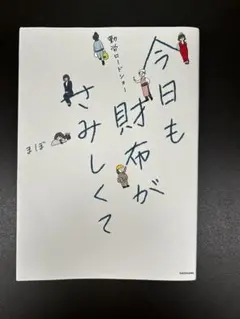 今日も
財布が
ロードショー
さみしくて
まぼ
KADOKAWA